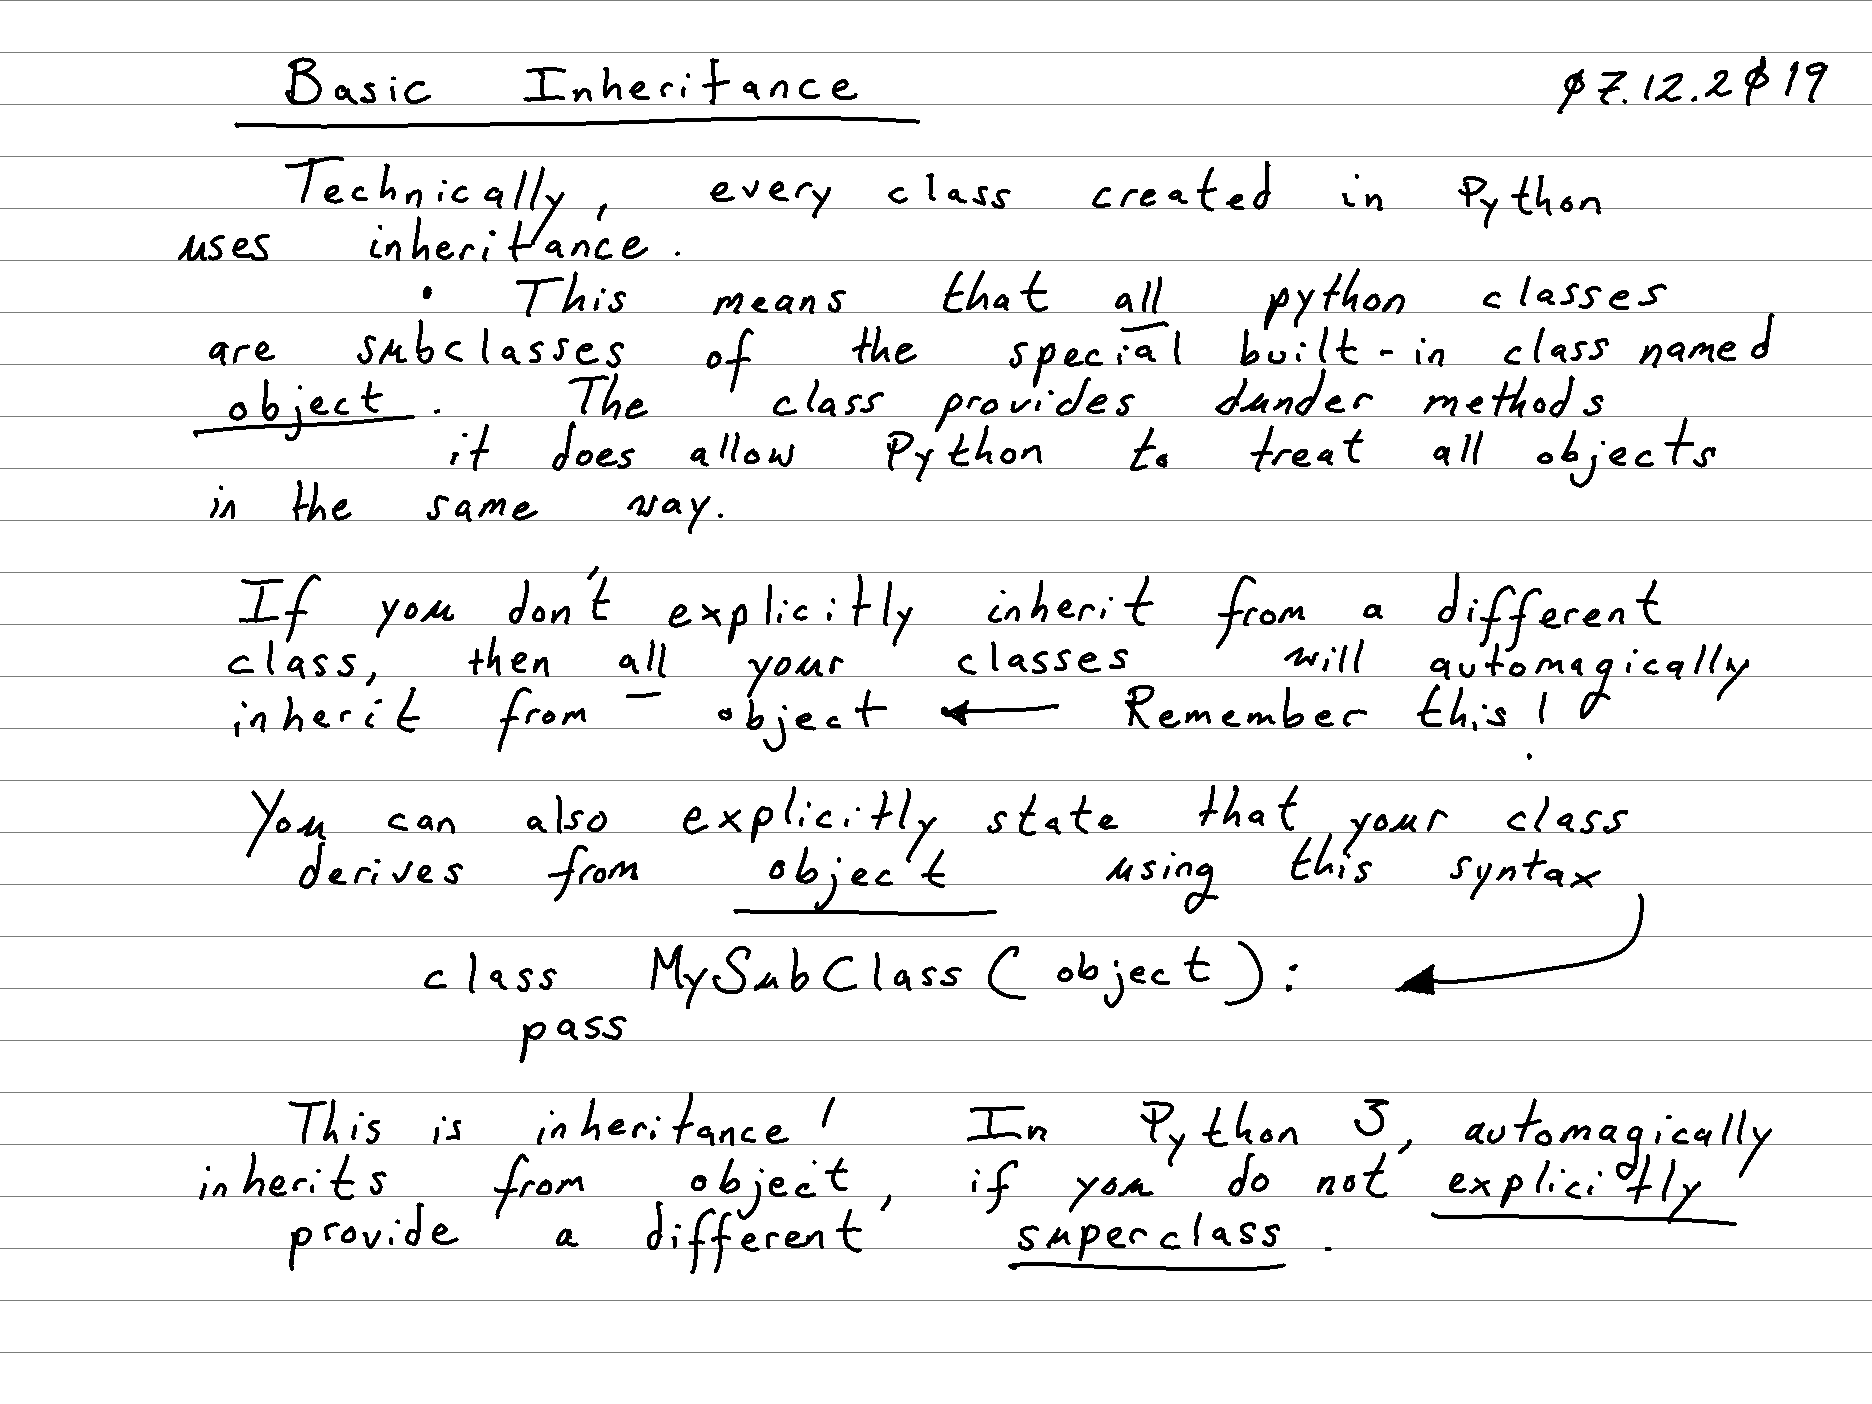 Basic Inheritance 07.12.2019
Technically, every class created in Python
uses inheritance.
• This means that all python classes
are subclasses of the special built-in class named
object. The class provides dunder methods
it does allow Python to treat all objects
in the same way.
If you don't explicitly inherit from a different
class, then all your classes will automagically
inherit from object ← Remember this!
You can also explicitly state that your class
derives from object using this syntax
class MySubClass(object):
pass
This is inheritance! In Python 3, automagically
inherits from object, if you do not explicitly
provide a different superclass.